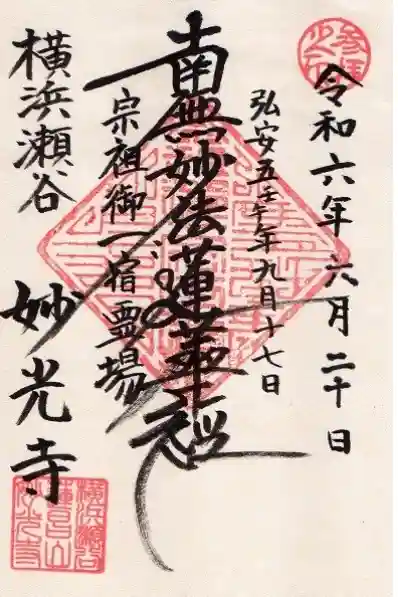 令和六年六月二十日
弘安五壬午年九月十七日
南無妙法蓮華経
宗祖御一宿霊場
横浜瀬谷
妙光寺
横浜瀬谷
蓮昌山
妙光寺